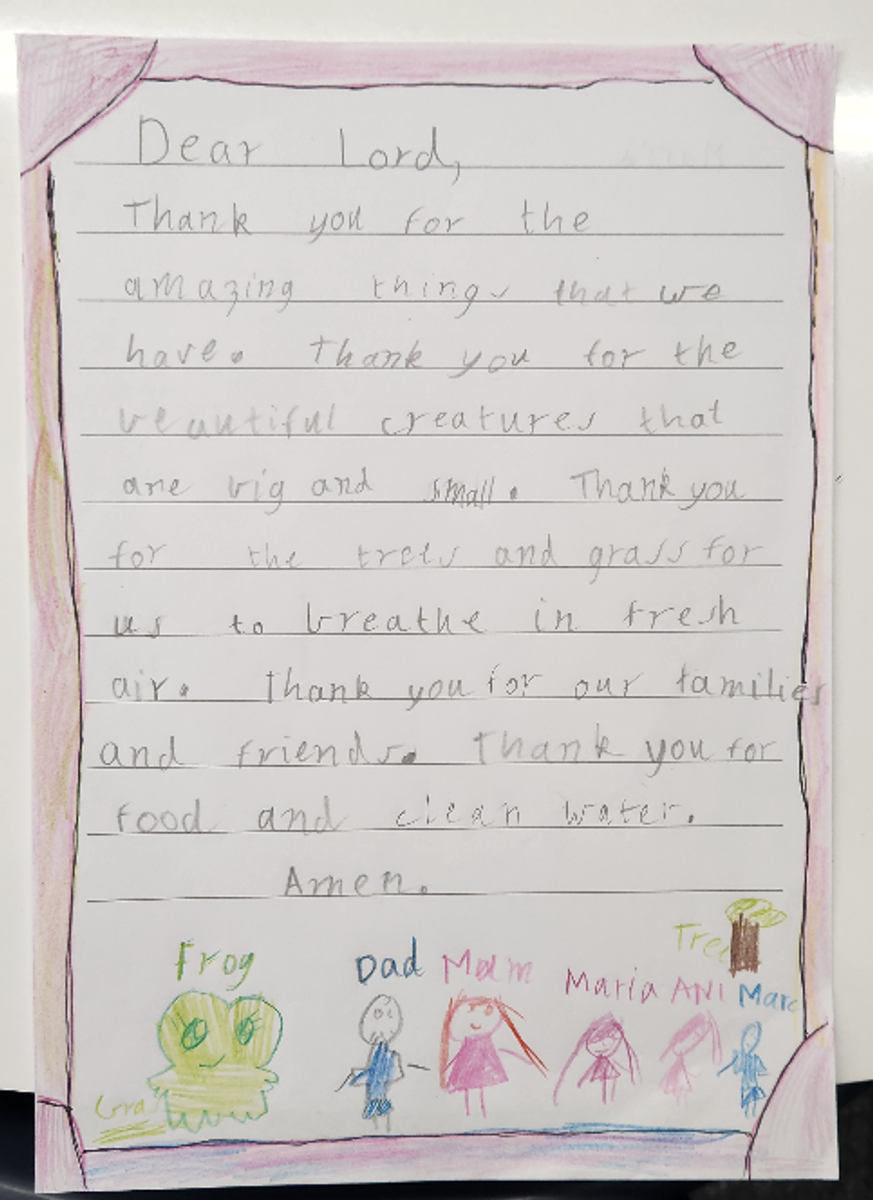 Dear Lord,
Thank you for the
amazing things that we
have. Thank you for the
beautiful creatures that
are big and small. Thank you
for the trees and grass for
us to breathe in fresh
air. Thank you for our families
and friends. Thank you for
food and clean water.
Amen.
Tree
Frog Dad Mam Maria ANI Marc
Gra